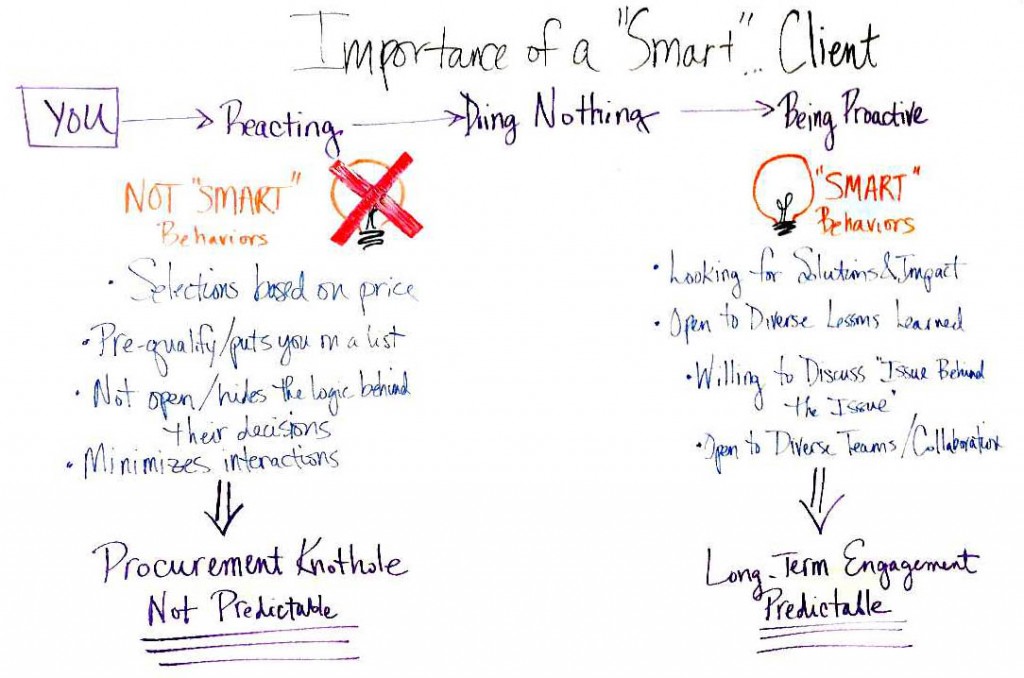 Importance of a "Smart"... Client
YOU → Reacting → Doing Nothing → Being Proactive
NOT "SMART"
Behaviors
• Selections based on price
• Pre-qualify/puts you on a list
• Not open/hides the logic behind
their decisions
• Minimizes interactions
Procurement Knothole
Not Predictable
"SMART"
Behaviors
• Looking for Solutions & Impact
• Open to Diverse Lessons Learned
• Willing to Discuss "Issue Behind
the Issue"
• Open to Diverse Teams/Collaboration
Long-Term Engagement
Predictable